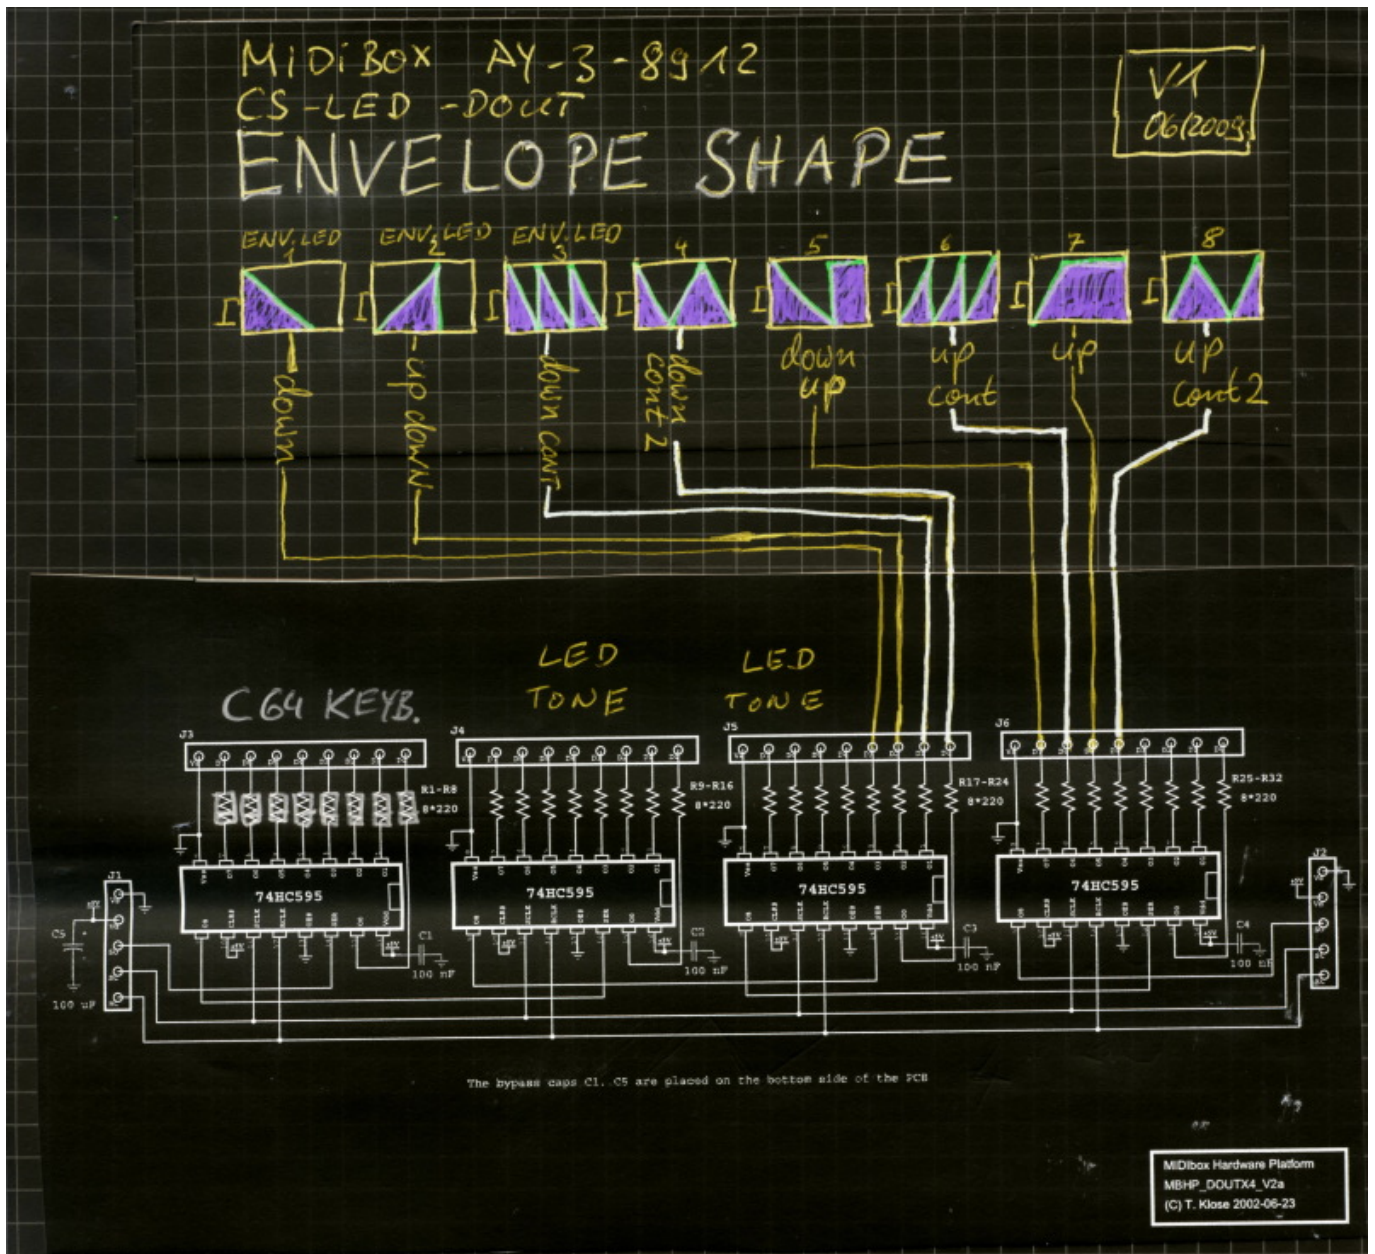 MIDIBOX AY-3-8912
CS-LED-DOUT
ENVELOPE SHAPE
V1
06/2009
ENV.LED
1
ENV.LED
2
ENV.LED
3
4
5
6
7
8
down
up down
down cont
down
cont 2
down
up
up
cont
up
up
cont 2
LED
TONE
LED
TONE
C64 KEYB.
J3
J4
J5
J6
R1-R8
8*220
R9-R16
8*220
R17-R24
8*220
R25-R32
8*220
74HC595
74HC595
74HC595
74HC595
J1
J2
C5
100 uF
C1
100 nF
C2
100 nF
C3
100 nF
C4
100 nF
The bypass caps C1..C5 are placed on the bottom side of the PCB
MIDIbox Hardware Platform
MBHP_DOUTX4_V2a
(C) T. Klose 2002-06-23